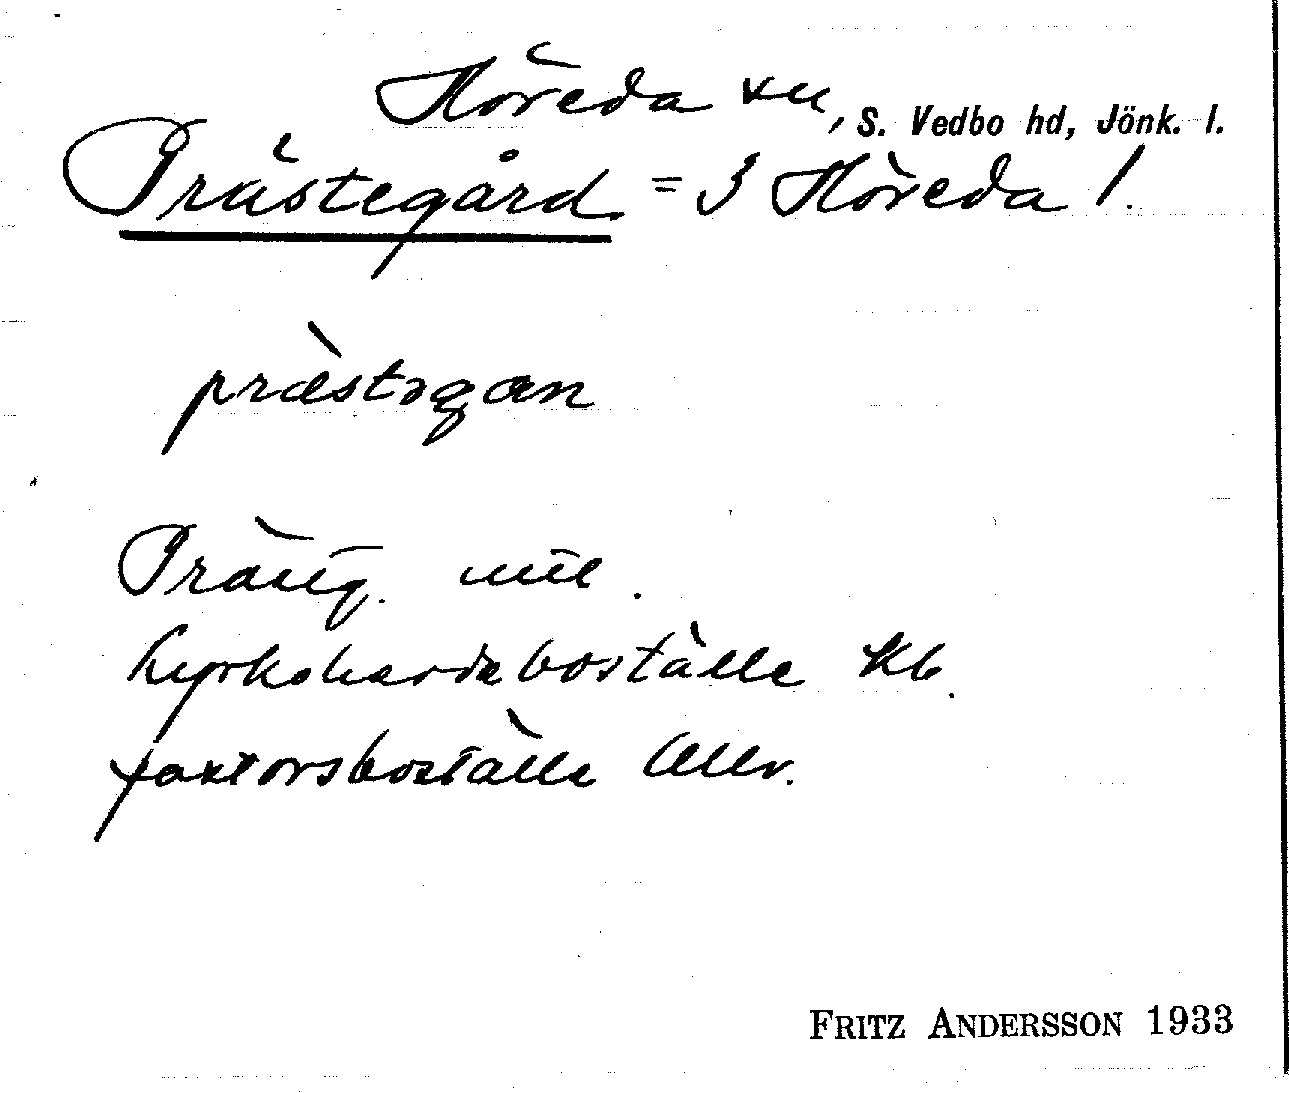 Höreda sn, S. Vedbo hd, Jönk. l.
Prästegård = 3 Höreda 1.
præ̀stəgαn
Prästg.
kyrkoherdeboställe Kb.
pastorsboställe Allv.
FRITZ ANDERSSON 1933